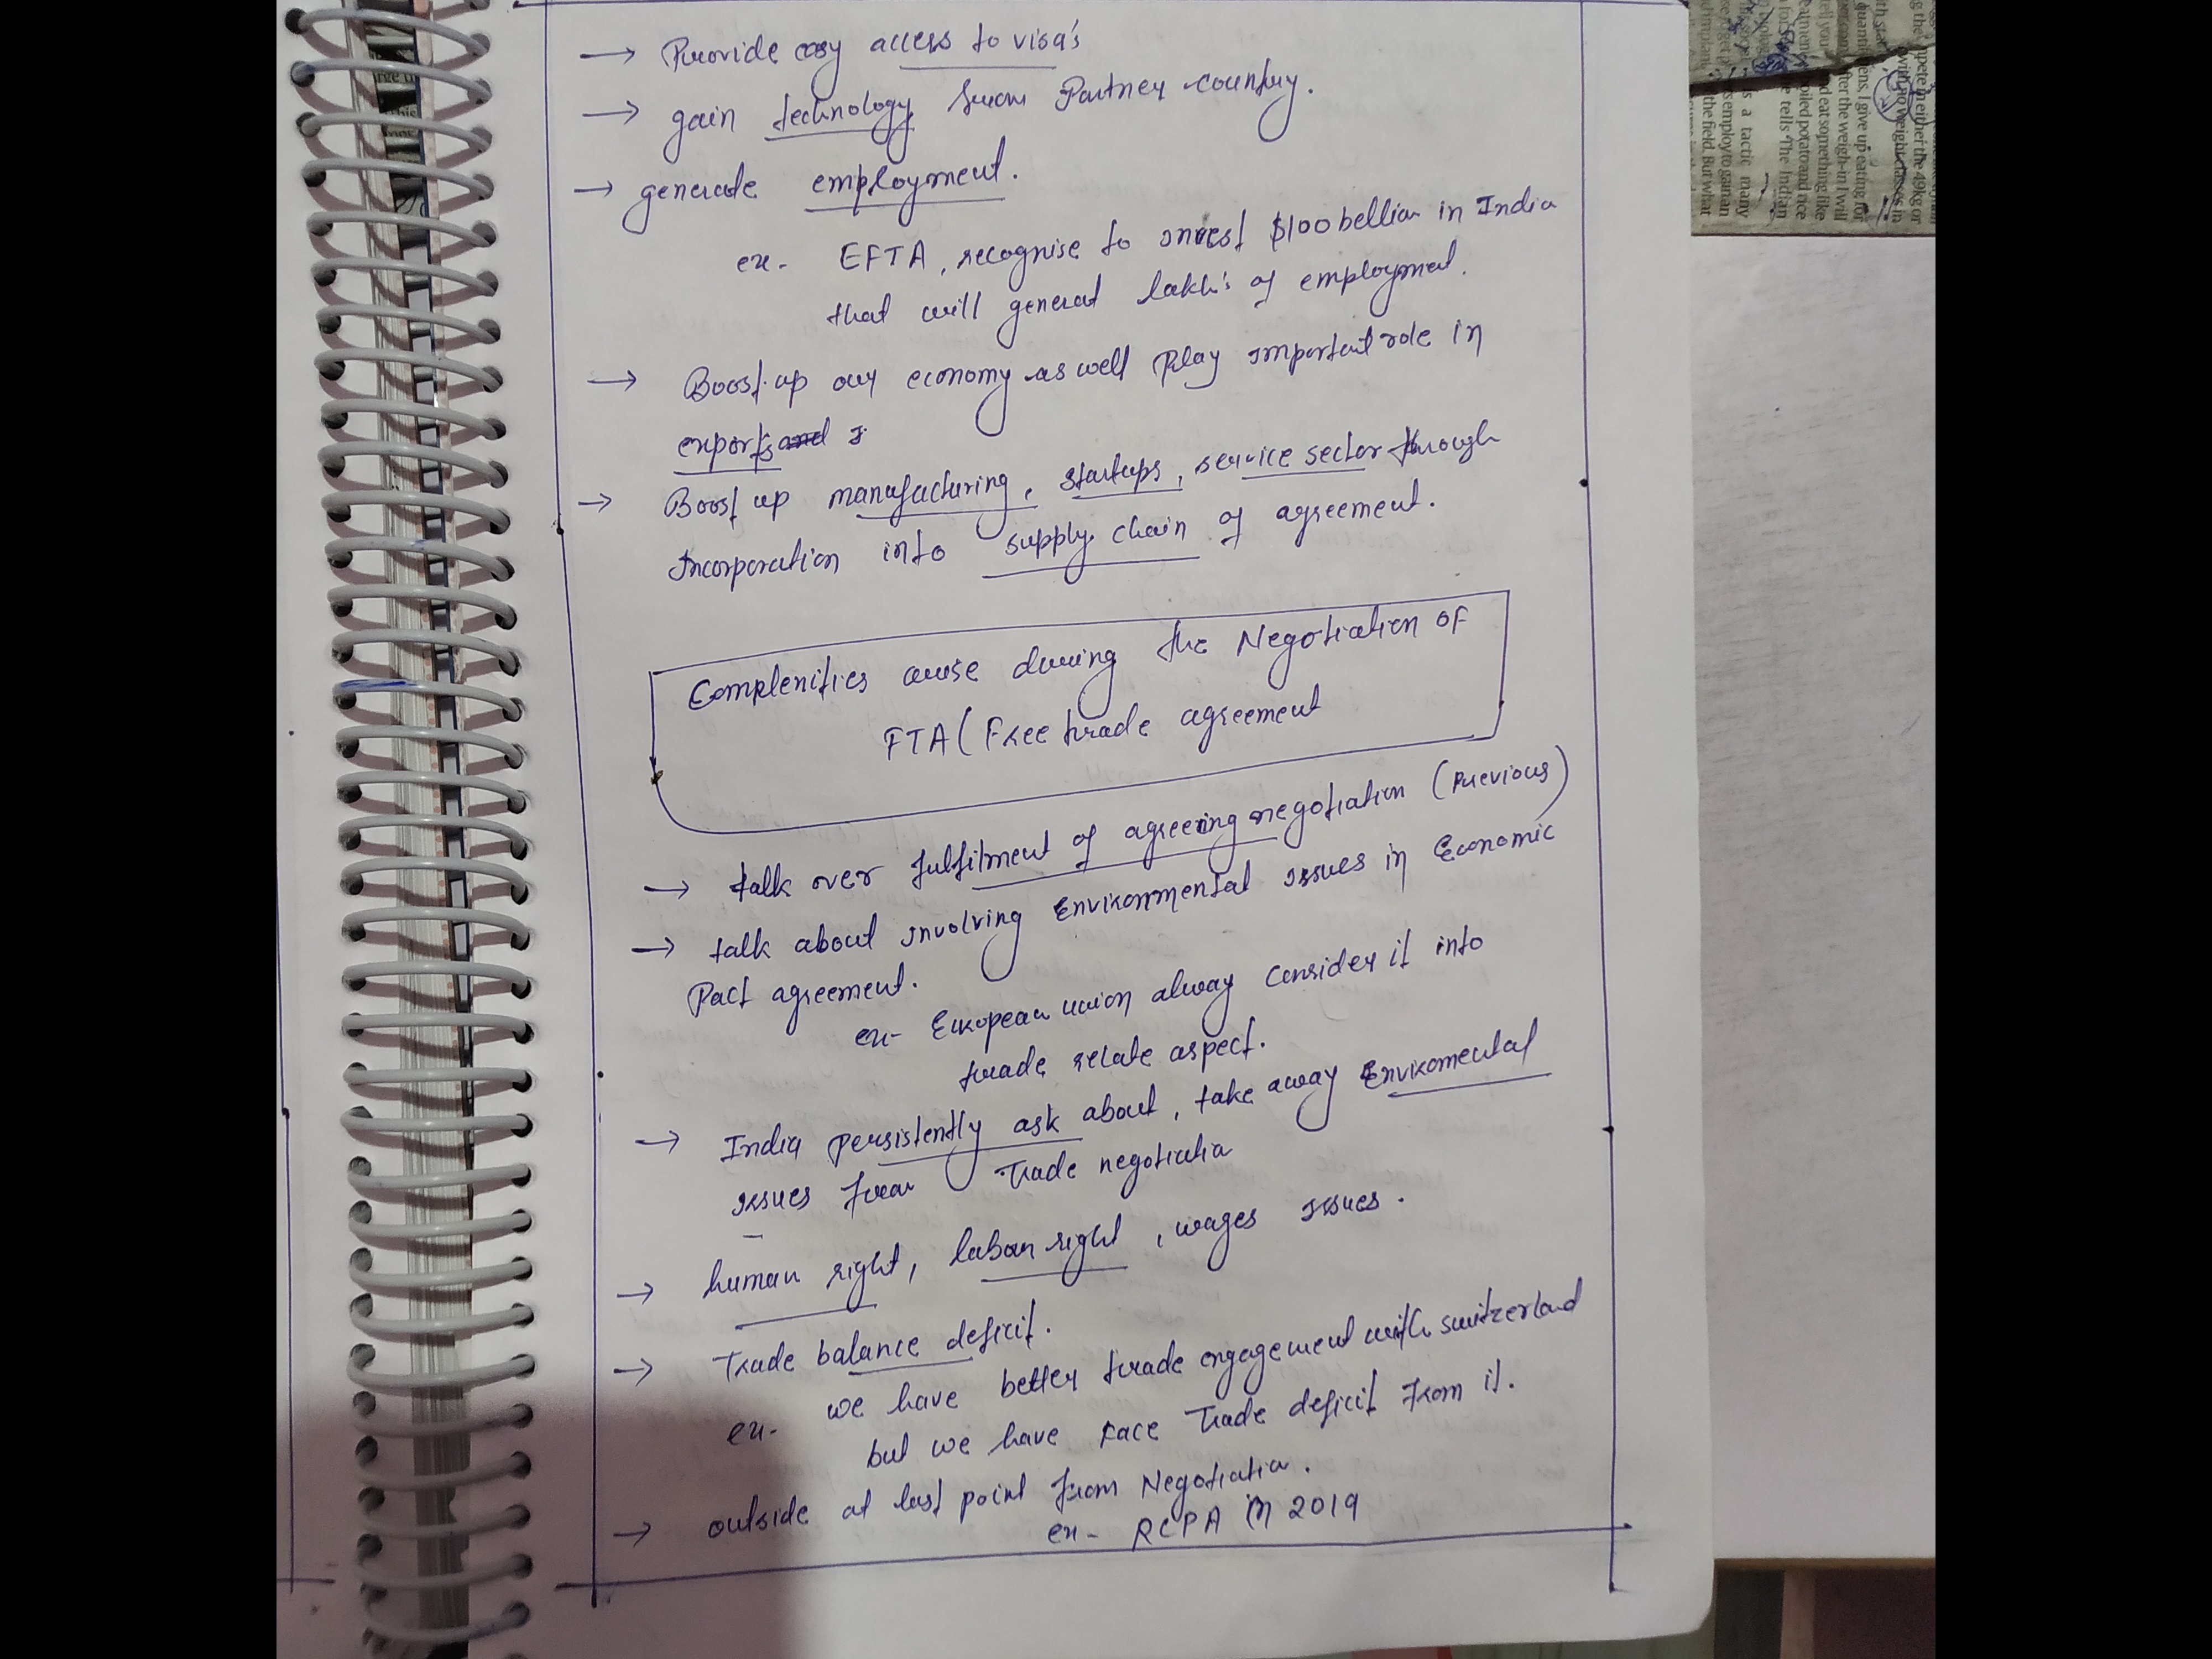 → Provide easy access to visa's
→ gain technology from Partner country.
→ generate employment.
ex- EFTA, recognise to invest $100 bellion in India
that will generat lakh's of employment.
→ Boost up our economy as well Play important role in
exports and
→ Boost up manufacturing, startups, service sector through
Incorporation into supply chain of agreement.
Complexities arise during the Negotiation of
FTA (Free trade agreement
→ talk over fulfilment of agreeing negotiation (Previous)
→ talk about involving Environmental issues in Economic
Pact agreement.
ex- European union alway consider it into
trade relate aspect.
→ India persistently ask about, take away Enviromental
issues from Trade negotiation
→ human right, labour right, wages issues.
→ Trade balance deficit.
ex- we have better trade engagement with switzerland
but we have face Trade deficit from it.
→ outside at last point from Negotiation.
ex- RCPA in 2019
pete in either the 49kg or
quantities, I give up eating for
after the weigh-in I will
and eat something like
boiled potato and rice
tells The Indian
is a tactic many
employ to gain an
the field. But what